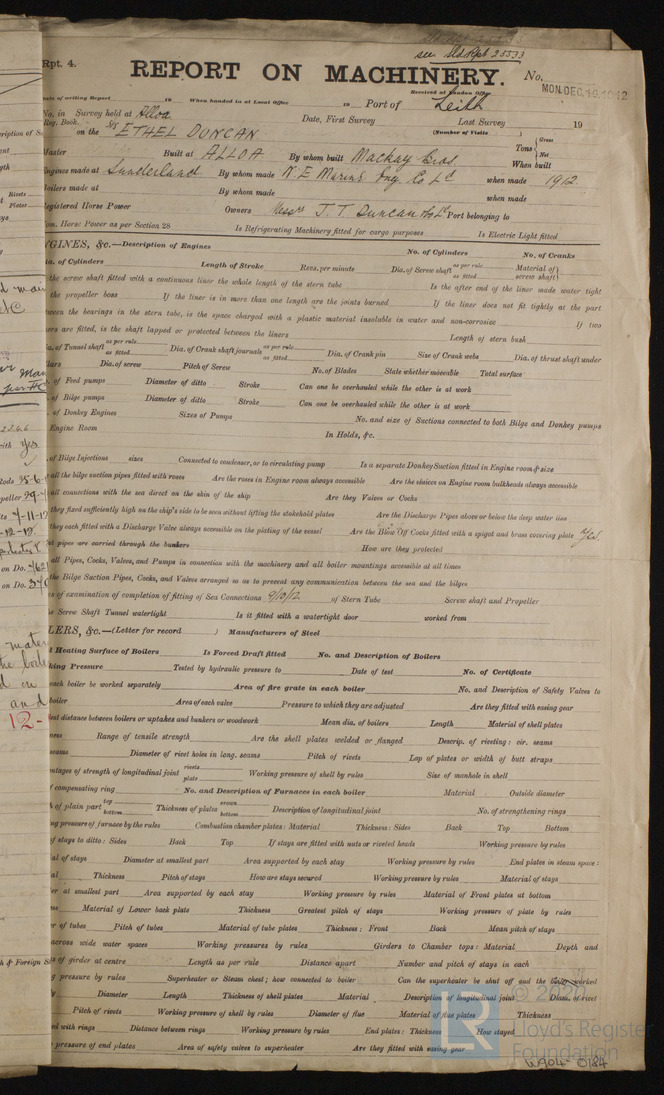 see Sld Rpt 25533
Rpt. 4.
REPORT ON MACHINERY.
No.
MON. DEC. 16. 1912
Received at London Office
Date of writing Report 19 When handed in at Local Office 19 Port of Leith
No. in Survey held at Alloa Date, First Survey Last Survey 19
Reg. Book. (Number of Visits )
on the S/S ETHEL DUNCAN Tons { Gross Net
Master Built at ALLOA By whom built Mackay Bros When built
Engines made at Sunderland By whom made N. E. Marine Eng. Co Ld when made 1912
Boilers made at By whom made when made
Registered Horse Power Owners Messrs J. T. Duncan & Co Ld Port belonging to
Nom. Horse Power as per Section 28 Is Refrigerating Machinery fitted for cargo purposes Is Electric Light fitted
ENGINES, &c.—Description of Engines No. of Cylinders No. of Cranks
Dia. of Cylinders Length of Stroke Revs. per minute Dia. of Screw shaft as per rule as fitted Material of screw shaft
the screw shaft fitted with a continuous liner the whole length of the stern tube Is the after end of the liner made water tight
the propeller boss If the liner is in more than one length are the joints burned If the liner does not fit tightly at the part
between the bearings in the stern tube, is the space charged with a plastic material insoluble in water and non-corrosive If two
liners are fitted, is the shaft lapped or protected between the liners Length of stern bush
Dia. of Tunnel shaft as per rule as fitted Dia. of Crank shaft journals as per rule as fitted Dia. of Crank pin Size of Crank webs Dia. of thrust shaft under
collars Dia. of screw Pitch of Screw No. of Blades State whether moveable Total surface
of Feed pumps Diameter of ditto Stroke Can one be overhauled while the other is at work
of Bilge pumps Diameter of ditto Stroke Can one be overhauled while the other is at work
of Donkey Engines Sizes of Pumps No. and size of Suctions connected to both Bilge and Donkey pumps
Engine Room In Holds, &c.
of Bilge Injections sizes Connected to condenser, or to circulating pump Is a separate Donkey Suction fitted in Engine room & size
all the bilge suction pipes fitted with roses Are the roses in Engine room always accessible Are the sluices on Engine room bulkheads always accessible
all connections with the sea direct on the skin of the ship Are they Valves or Cocks
they fixed sufficiently high on the ship's side to be seen without lifting the stokehold plates Are the Discharge Pipes above or below the deep water line
they each fitted with a Discharge Valve always accessible on the plating of the vessel Are the Blow Off Cocks fitted with a spigot and brass covering plate Yes.
pipes are carried through the bunkers How are they protected
all Pipes, Cocks, Valves, and Pumps in connection with the machinery and all boiler mountings accessible at all times
the Bilge Suction Pipes, Cocks, and Valves arranged so as to prevent any communication between the sea and the bilges
of examination of completion of fitting of Sea Connections 9/10/12 of Stern Tube Screw shaft and Propeller
the Screw Shaft Tunnel watertight Is it fitted with a watertight door worked from
BOILERS, &c.—(Letter for record ) Manufacturers of Steel
Heating Surface of Boilers Is Forced Draft fitted No. and Description of Boilers
Working Pressure Tested by hydraulic pressure to Date of test No. of Certificate
each boiler be worked separately Area of fire grate in each boiler No. and Description of Safety Valves to
boiler Area of each valve Pressure to which they are adjusted Are they fitted with easing gear
distance between boilers or uptakes and bunkers or woodwork Mean dia. of boilers Length Material of shell plates
Range of tensile strength Are the shell plates welded or flanged Descrip. of riveting: cir. seams
seams Diameter of rivet holes in long. seams Pitch of rivets Lap of plates or width of butt straps
percentages of strength of longitudinal joint rivets plate Working pressure of shell by rules Size of manhole in shell
of compensating ring No. and Description of Furnaces in each boiler Material Outside diameter
of plain part top bottom Thickness of plates crown bottom Description of longitudinal joint No. of strengthening rings
pressure of furnace by the rules Combustion chamber plates: Material Thickness: Sides Back Top Bottom
of stays to ditto: Sides Back Top If stays are fitted with nuts or riveted heads Working pressure by rules
of stays Diameter at smallest part Area supported by each stay Working pressure by rules End plates in steam space:
Thickness Pitch of stays How are stays secured Working pressure by rules Material of stays
at smallest part Area supported by each stay Working pressure by rules Material of Front plates at bottom
Material of Lower back plate Thickness Greatest pitch of stays Working pressure of plate by rules
of tubes Pitch of tubes Material of tube plates Thickness: Front Back Mean pitch of stays
across wide water spaces Working pressures by rules Girders to Chamber tops: Material Depth and
of girder at centre Length as per rule Distance apart Number and pitch of stays in each
pressure by rules Superheater or Steam chest; how connected to boiler Can the superheater be shut off and the boiler worked
Diameter Length Thickness of shell plates Material Description of longitudinal joint Diam. of rivet
Pitch of rivets Working pressure of shell by rules Diameter of flue Material of flue plates Thickness
with rings Distance between rings Working pressure by rules End plates: Thickness How stayed
pressure of end plates Area of safety valves to superheater Are they fitted with easing gear
© 2020
Lloyd's Register
Foundation
W904-0184